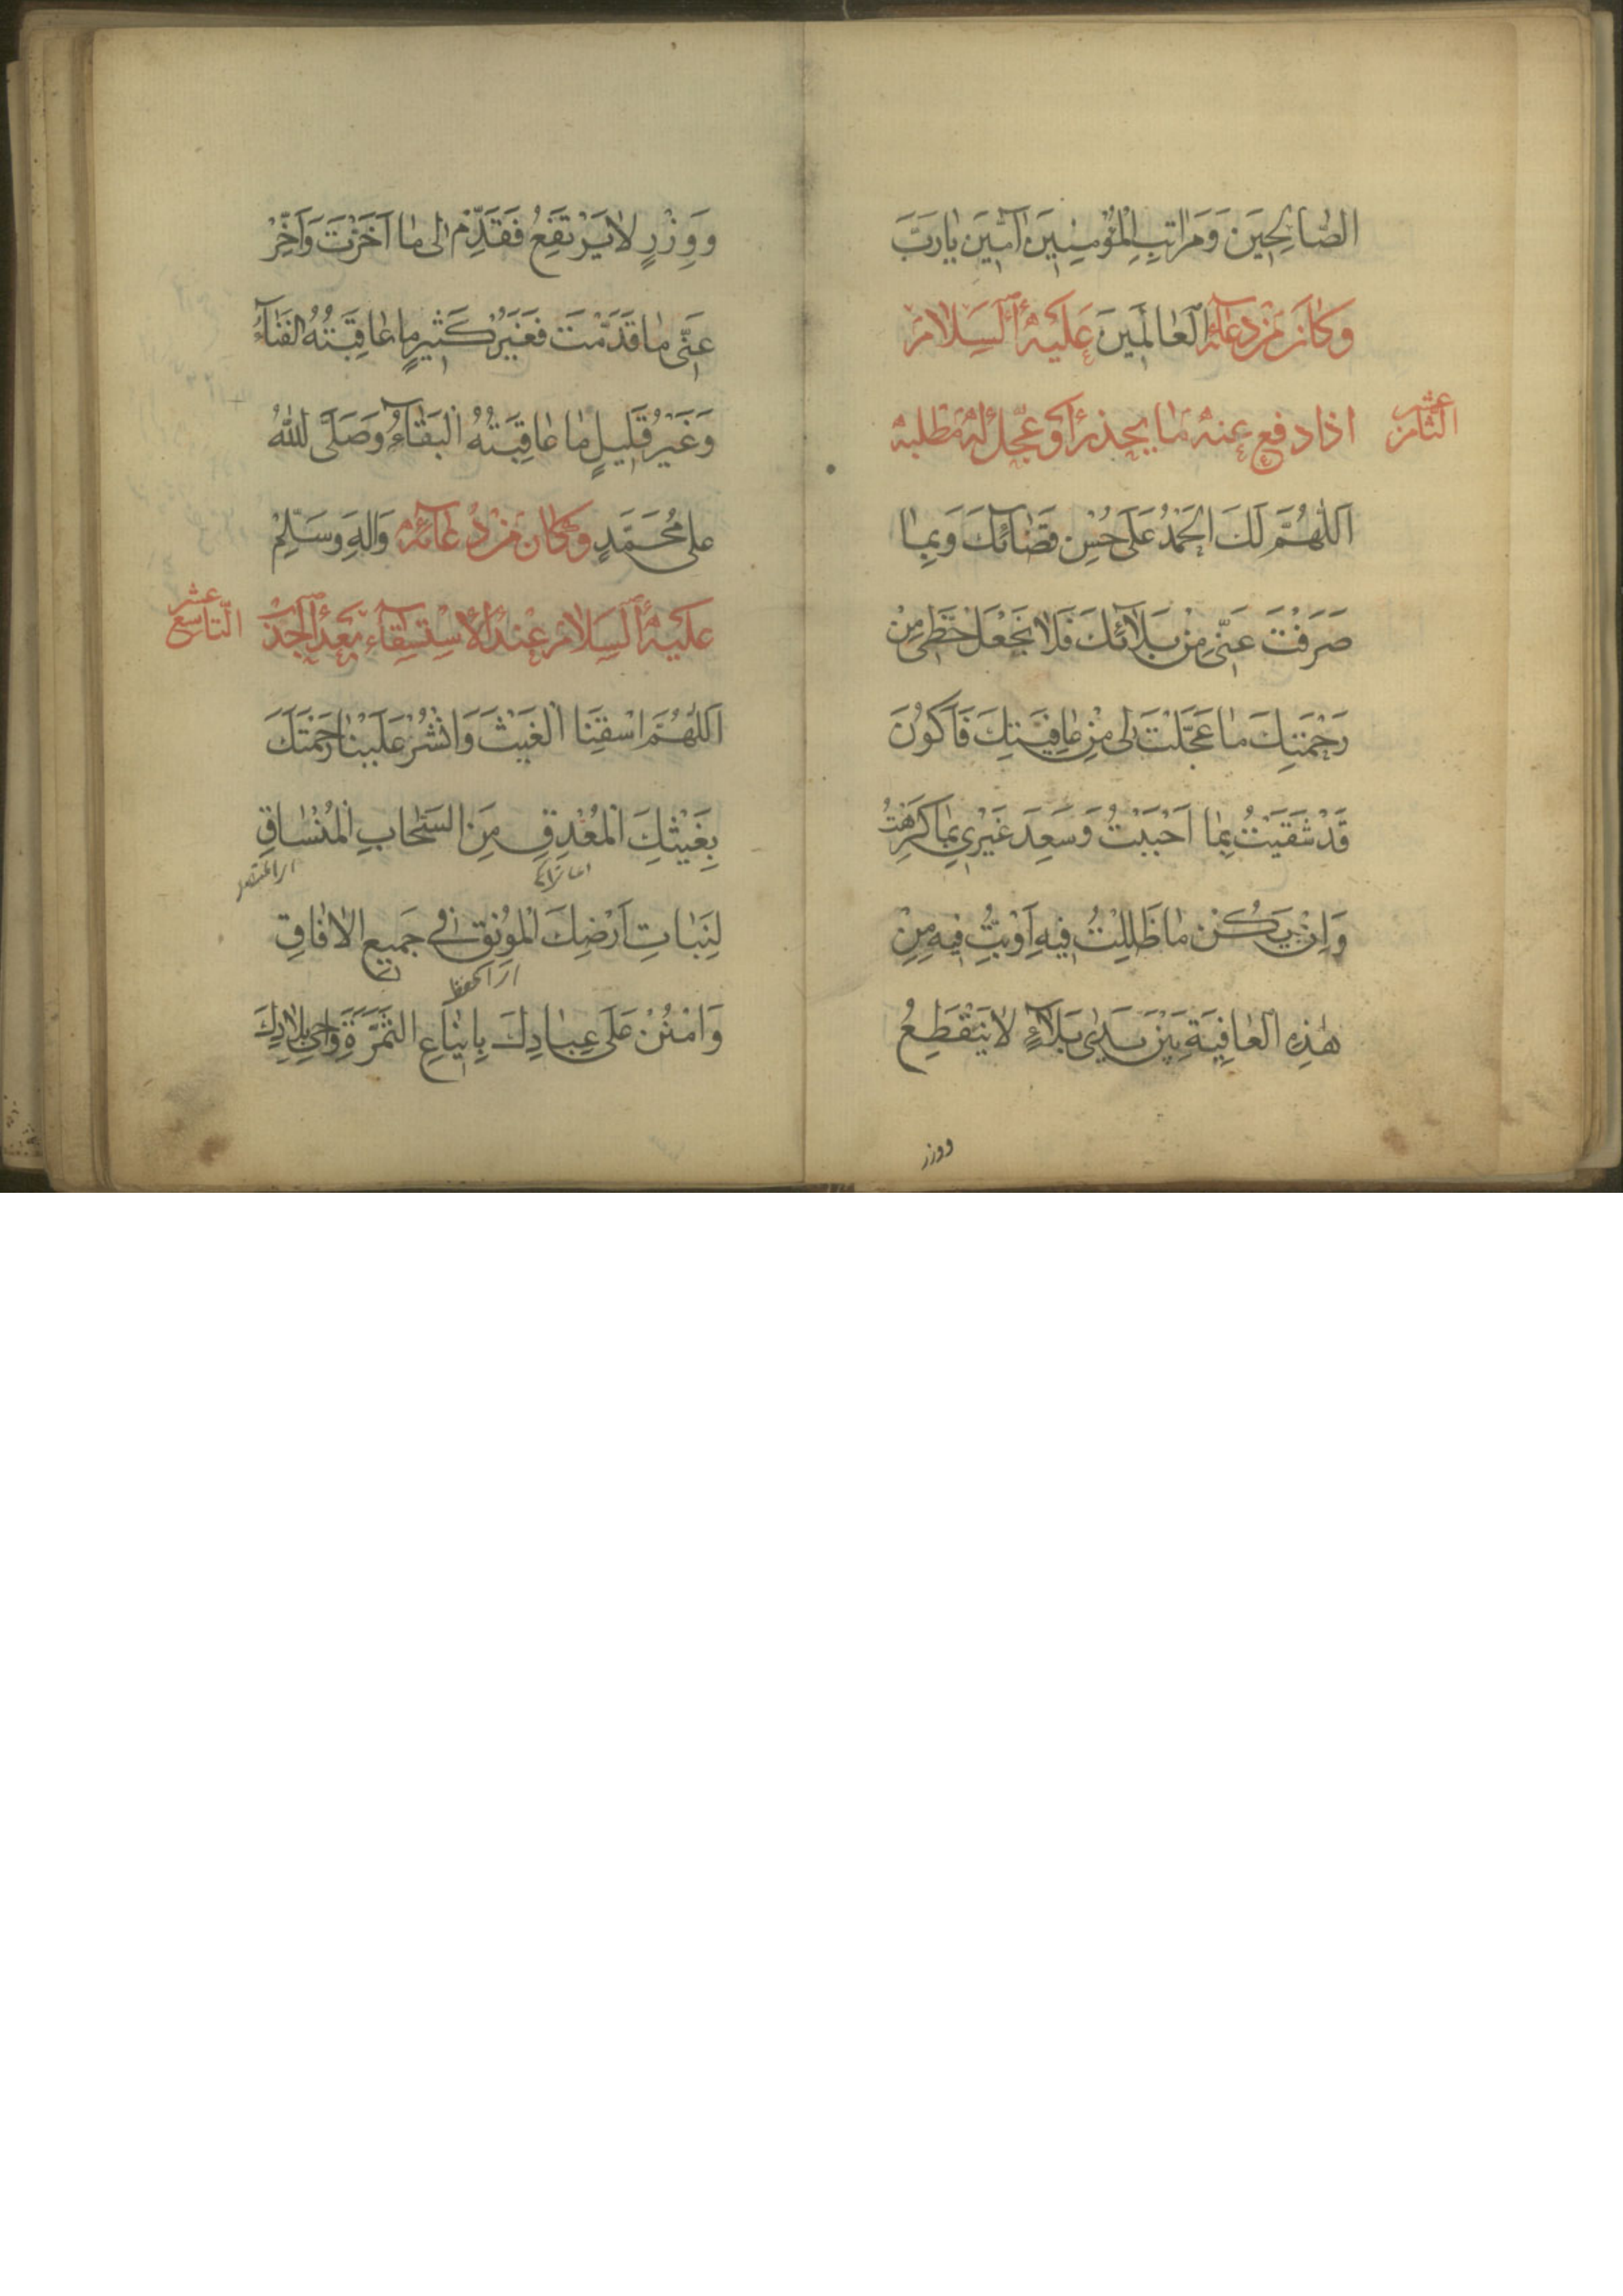 الصَّالِحِينَ وَمَرَاتِبِ الْمُؤْمِنِينَ آمِينَ يَارَبَّ
وكان من دعائه الْعَالَمِينَ عليه السلام
الثامن عشر
اذا دفع عنه ما يحذر او عجّل له مطلبه
اَللّٰهُمَّ لَكَ الْحَمْدُ عَلَى حُسْنِ قَضَائِكَ وَبِمَا
صَرَفْتَ عَنِّي مِنْ بَلَائِكَ فَلَا تَجْعَلْ حَظِّي مِنْ
رَحْمَتِكَ مَا عَجَّلْتَ لِي مِنْ عَافِيَتِكَ فَأَكُونَ
قَدْ شَقِيْتُ بِمَا اَحْبَبْتُ وَسَعِدَ غَيْرِي بِمَا كَرِهْتُ
وَاِنْ يَكُنْ مَا ظَلِلْتُ فِيهِ اَوْ بِتُّ فِيهِ مِنْ
هٰذِهِ الْعَافِيَةِ بَيْنَ يَدَيْ بَلَآءٍ لَا يَنْقَطِعُ
ووزر
وَوِزْرٍ لَا يَرْتَفِعُ فَقَدِّمْ لِي مَا اَخَّرْتَ وَاَخِّرْ
عَنِّي مَا قَدَّمْتَ فَغَيْرُ كَثِيرٍ مَا عَاقِبَتُهُ الْفَنَآءُ
وَغَيْرُ قَلِيلٍ مَا عَاقِبَتُهُ الْبَقَآءُ وَصَلَّى اللّٰهُ
عَلَى مُحَمَّدٍ وكان من دعائه وَالِهِ وَسَلِّمْ
عليه السلام عند الاستسقاء بعد الجدب
التاسع عشر
اَللّٰهُمَّ اسْقِنَا الْغَيْثَ وَانْشُرْ عَلَيْنَا رَحْمَتَكَ
بِغَيْثِكَ الْمُغْدِقِ مِنَ السَّحَابِ الْمُنْسَاقِ
لِنَبَاتِ اَرْضِكَ الْمُونِقِ فِي جَمِيعِ الْاٰفَاقِ
وَامْنُنْ عَلَى عِبَادِكَ بِاِينَاعِ الثَّمَرَةِ وَاَحْيِ بِلَادَكَ